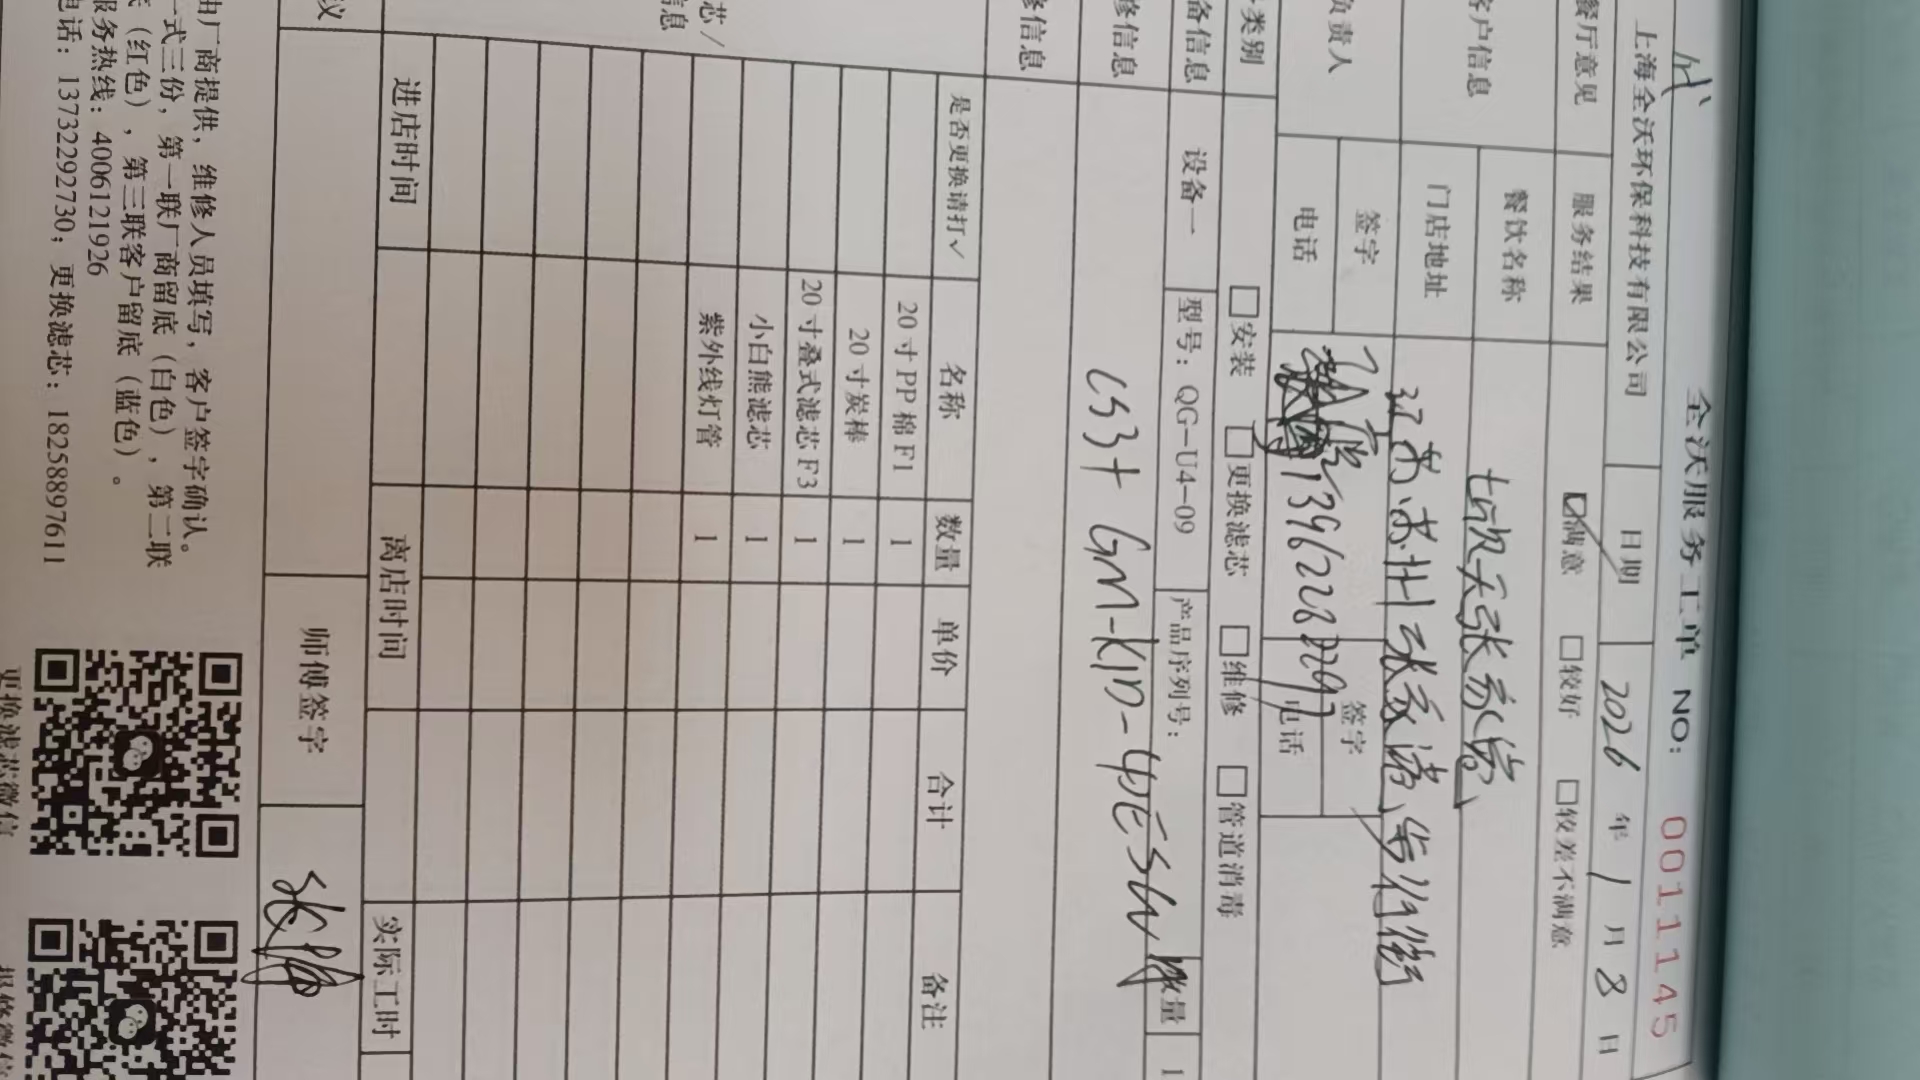 全沃服务工单 NO: 0011145
上海全沃环保科技有限公司 日期 2026 年 1 月 8 日
餐厅意见 服务结果 ☑满意 □较好 □较差不满意
客户信息 餐饮名称 七欣天张家港
门店地址 江苏苏州张家港
负责人 签字 签字
电话 13961228297 电话
类别 □安装 □更换滤芯 □维修 □管道消毒
备信息 设备一 型号：QG-U4-09 产品序列号： 数量 1
修信息
修信息
是否更换请打✓ 名称 数量 单价 合计 备注
20 寸 PP 棉 F1 1
20 寸炭棒 1
20 寸叠式滤芯 F3 1
小白熊滤芯 1
紫外线灯管 1
芯/
信息
进店时间 离店时间 实际工时
议 师傅签字
由厂商提供，维修人员填写，客户签字确认。
一式三份，第一联厂商留底（白色），第二联
（红色），第三联客户留底（蓝色）。
服务热线：4006121926
电话：13732292730；更换滤芯：18258897611
更换滤芯微信
报修微信